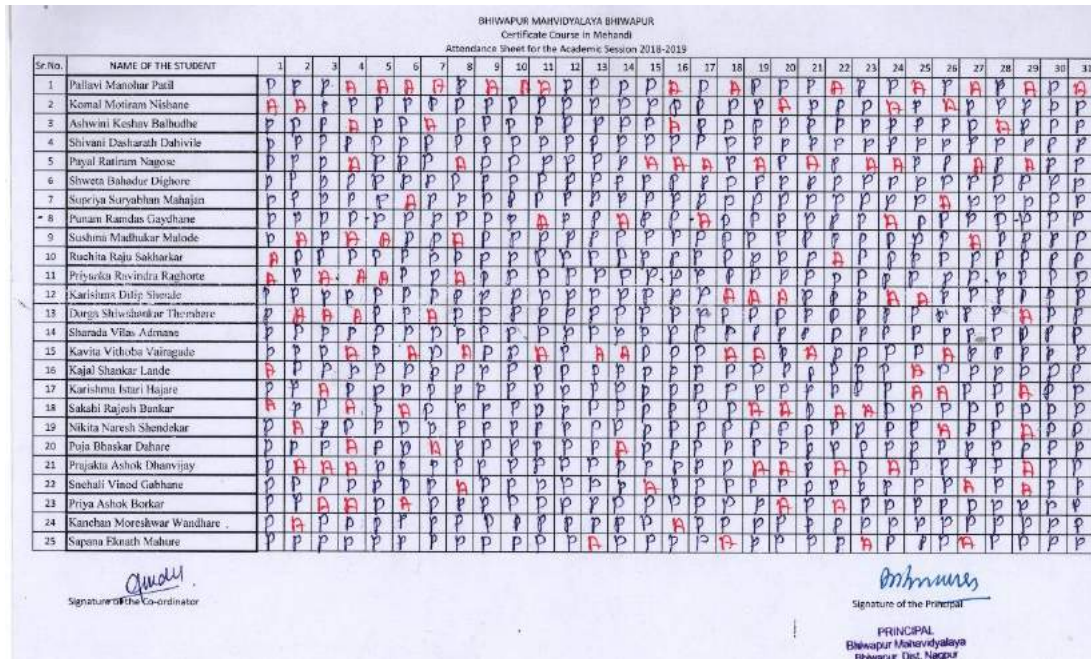 BHIWAPUR MAHVIDYALAYA BHIWAPUR
Certificate Course in Mehandi
Attendance Sheet for the Academic Session 2018-2019
Sr.No. NAME OF THE STUDENT 1 2 3 4 5 6 7 8 9 10 11 12 13 14 15 16 17 18 19 20 21 22 23 24 25 26 27 28 29 30 31
1 Pallavi Manohar Patil P P P A A A A P A A A P P P P A P A P P P A P P A P A P A P A
2 Komal Motiram Nishane A A P P P P P P P P P P P P P P P P P A P P P A P A P P P P P
3 Ashwini Keshav Balbudhe P P P A P P A P P P P P P P P A P P P P P P P P P P P A P P P
4 Shivani Dasharath Dahivile P P P P P P P P P P P P P P P P P P P P P P P P P P P P P P P
5 Payal Ratiram Nagose P P P A P P P A P P P P P P A A A P A P A P A A P P A P A P P
6 Shweta Bahadur Dighore P P P P P P P P P P P P P P P P P P P P P P P P P P P P P P P
7 Supriya Suryabhan Mahajan P P P P P A P P P P P P P P P P P P P P P P P P P A P P P P P
8 Punam Ramdas Gaydhane P P P P P P P P P P A P P A P P A P P P P P P A P P P P P P P
9 Sushma Madhukar Malode P A P A A P P A P P P P P P P P P P P P P P P P P P A P P P P
10 Ruchita Raju Sakharkar A P P P P P P P P P P P P P P P P P P P P A P P P P P P P P P
11 Priyanka Ravindra Raghorte A P A A A P P A P P P P P P P P P P P P P P P P P P P P P P P
12 Karishma Dilip Shende P P P P P P P P P P P P P P P P P A A A P P P A A P P P P P P
13 Durga Shiwshankar Thembare P A A A P P A P P P P P P P P P P P P P P P P P P P P P A P P
14 Sharada Vilas Admane P P P P P P P P P P P P P P P P P P P P P P P P P P P P P P P
15 Kavita Vithoba Vairagade P P P A P A P A P P A P A A P P P A A P A P P P P A P P P P P
16 Kajal Shankar Lande A P P P P P P P P P P P P P P P P P P P P P P P A P P P P P P
17 Karishma Istari Hajare P P A P P P P P P P P P P P P P P P P P P P P P A A P P A P P
18 Sakshi Rajesh Bankar A P P A P A P P P P P P P P P P P P A A P A A P P P P P P P P
19 Nikita Naresh Shendekar P A P P P P P P P P P P P P P P P P P P P P P P P A P P A P P
20 Puja Bhaskar Dahare P P P A P P A P P P P P P A P P P P P P P P P P P P P P P P P
21 Prajakta Ashok Dhanvijay P A A A P P P P P P P P P P P P P P A A P A P A P P P P A P P
22 Snehali Vinod Gabhane P P P P P P P A P P P P P P A P P P P P P P P P P P A P A P P
23 Priya Ashok Borkar P P A A P A P P P P P P P P P P P P P A P A P P P P P P P P P
24 Kanchan Moreshwar Wandhare P A P P P P P P P P P P P P P A P P P P P P P P P P P P P P P
25 Sapana Eknath Mahure P P P P P P P P P P P P A P P P P A P P P P A P P P A P P P P
Signature of the Co-ordinator
Signature of the Principal
PRINCIPAL
Bhiwapur Mahavidyalaya
Bhiwapur, Dist. Nagpur